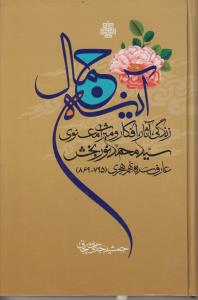 آینه جمال
زندگی، آثار، افکار و میراث معنوی
سید محمد نوربخش
عارف سده نهم هجری (۷۹۵-۸۶۹)
جمشید جلالی شیجانی